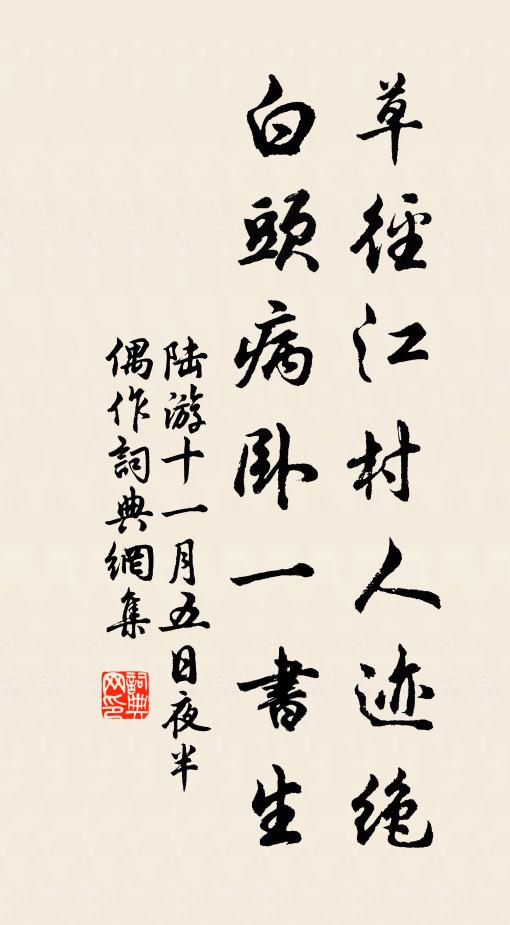 草徑江村人迹絶
白頭病卧一書生
陆游十一月五日夜半
偶作詞典網集
詞典
网印